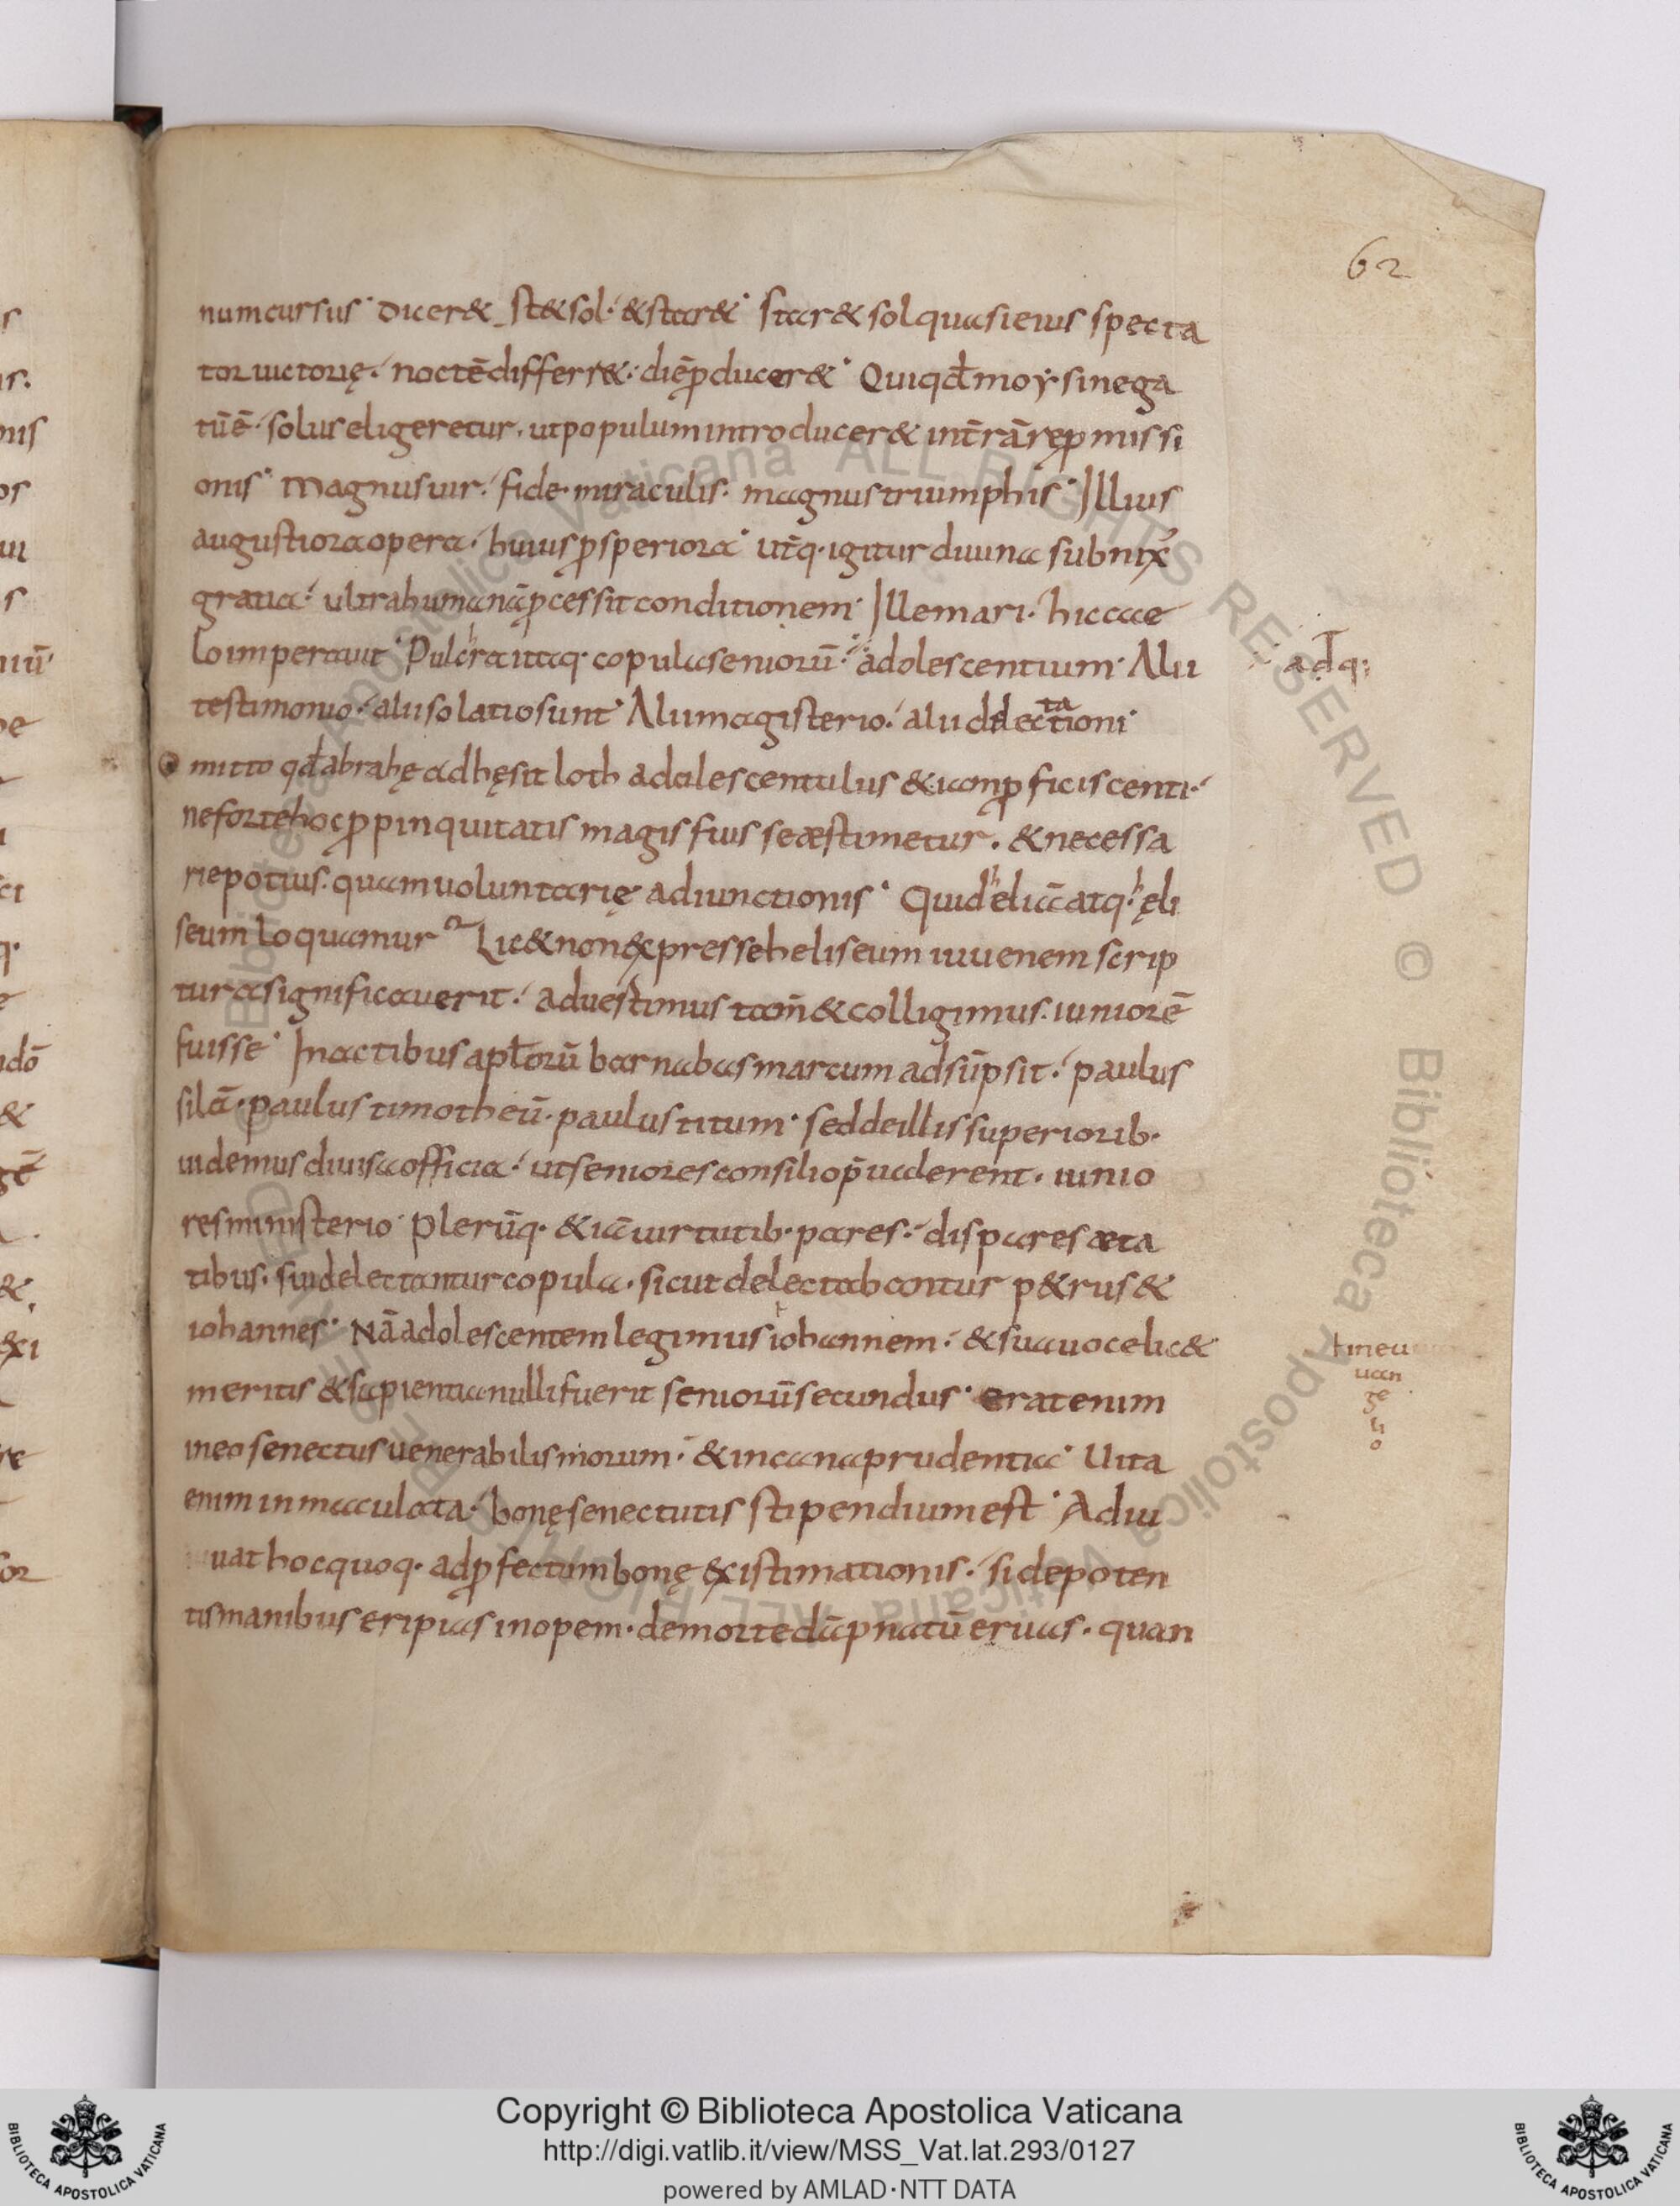 62
numcursus· Dicer& st&sol·́ &star&· Star&solquasieius specta
toruictorię·́ noctēdifferr&· diēproducer&· Quiqđmoysinega
tūē·́ soluseligeretur, utpopulumintroducer& int̄rārep̱missi
onis· Magnusuir·́ fide·miraculis· magnustriumphis· Illius
augustioraopera·́ huiusꝓsperiora· Ut̄q·igiturdiuina subnix᷒
gratia·́ ultrahumanāꝓcessitconditionem· Illemari·́ hiccae
loimperauit· Pulchraitaq· copulaseniorū·́ adolescentium· Alii
adq;
testimonio·́ aliisolatiosunt· Aliimagisterio·́ aliidelectationi·
mitto qđabrahęadhęsit loth adolescentulus &iamꝓficiscenti·́
nefortehocꝓpinquitatis magisfuisseæstimetur. &necessa
riepotius· quamuoluntarię adiunctionis· Quidheliāatq· hęli
seumloquamur Lic&non&pressehheliseum iuuenem scrip
turasignificauerit·́ aduestimus tam̄&colligimus· iuniorē
fuisse· Inactibusaptorū barnabasmarcum adsūpsit·́ paulus
silā·paulus timotheū·paulustitum· seddeillissuperiorib·
uidemusdiuisaofficia·́ utsenioresconsiliop̄uaderent· iunio
resministerio· Plerūq· &iāuirtutib·pares·́ dispares æta
tibus· suidelectanturcopula·sicutdelectabantur p&rus&
iohannes· Nāadolescentemlegimus iohannem·́ &suauocelic&
meritis &sapientianullifuerit seniorūsecundus· eratenim
ineosenectusuenerabilismorum·́ &incanaprudentia· Uita
eniminmaculata·́ bonęsenectutis stipendiumest· Adiu
uathocquoq· adꝓfectumbonę existimationis·́ sidepoten
tismanibuseripiasinopem·demortedāpnatūeruas· quan
Copyright © Biblioteca Apostolica Vaticana
http://digi.vatlib.it/view/MSS_Vat.lat.293/0127
powered by AMLAD·NTT DATA